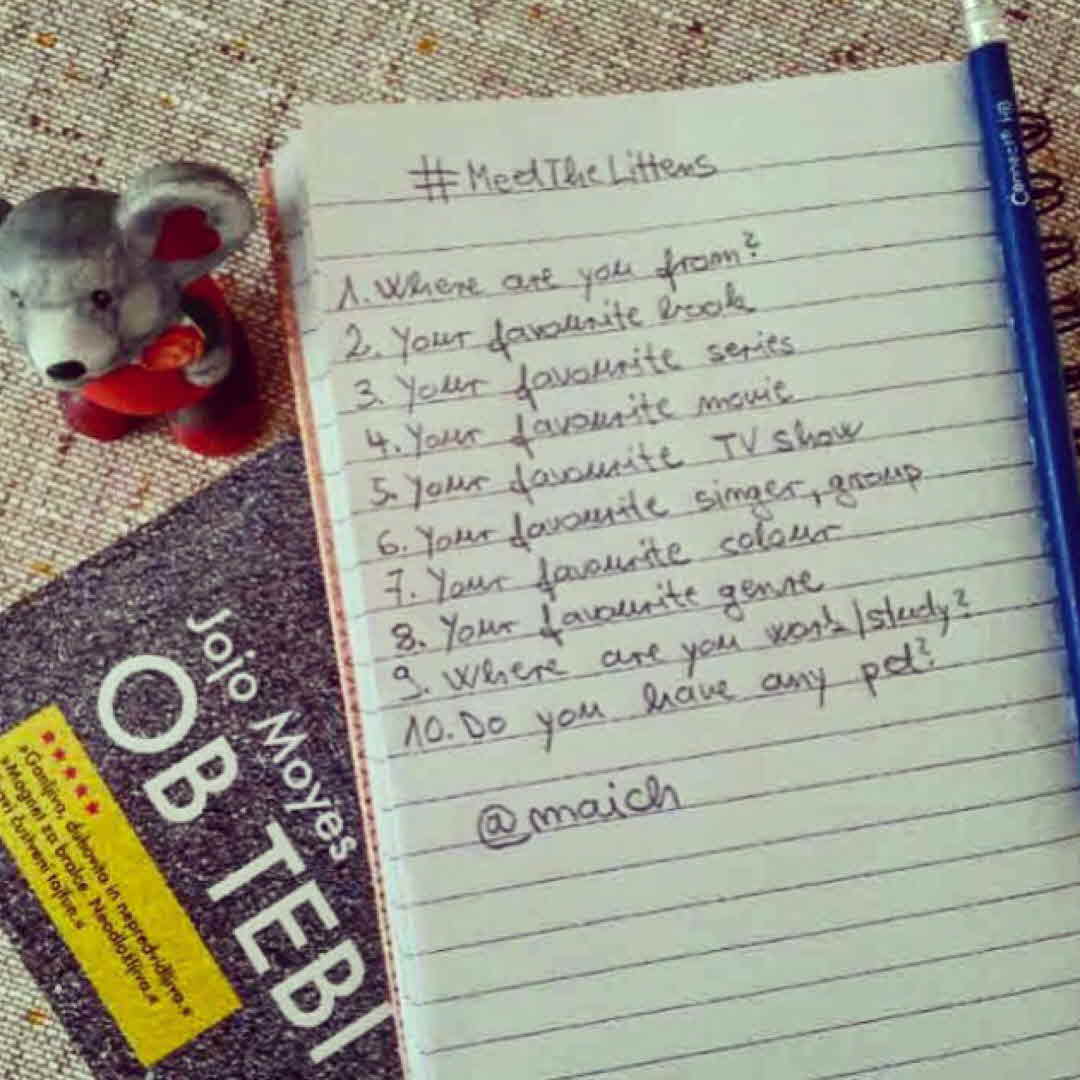 #MeetTheLittens
1. Where are you from?
2. Your favourite book
3. Your favourite series
4. Your favourite movie
5. Your favourite TV show
6. Your favourite singer, group
7. Your favourite colour
8. Your favourite genre
9. Where are you work/study?
10. Do you have any pet?
@maich
Connecte HB
Jojo Moyes
OB TEBI
»Ganljivo, duhovito in nepredvidljivo.«
»Magnet za bralce. Neodložljivo.«
čustveni tajfun.«